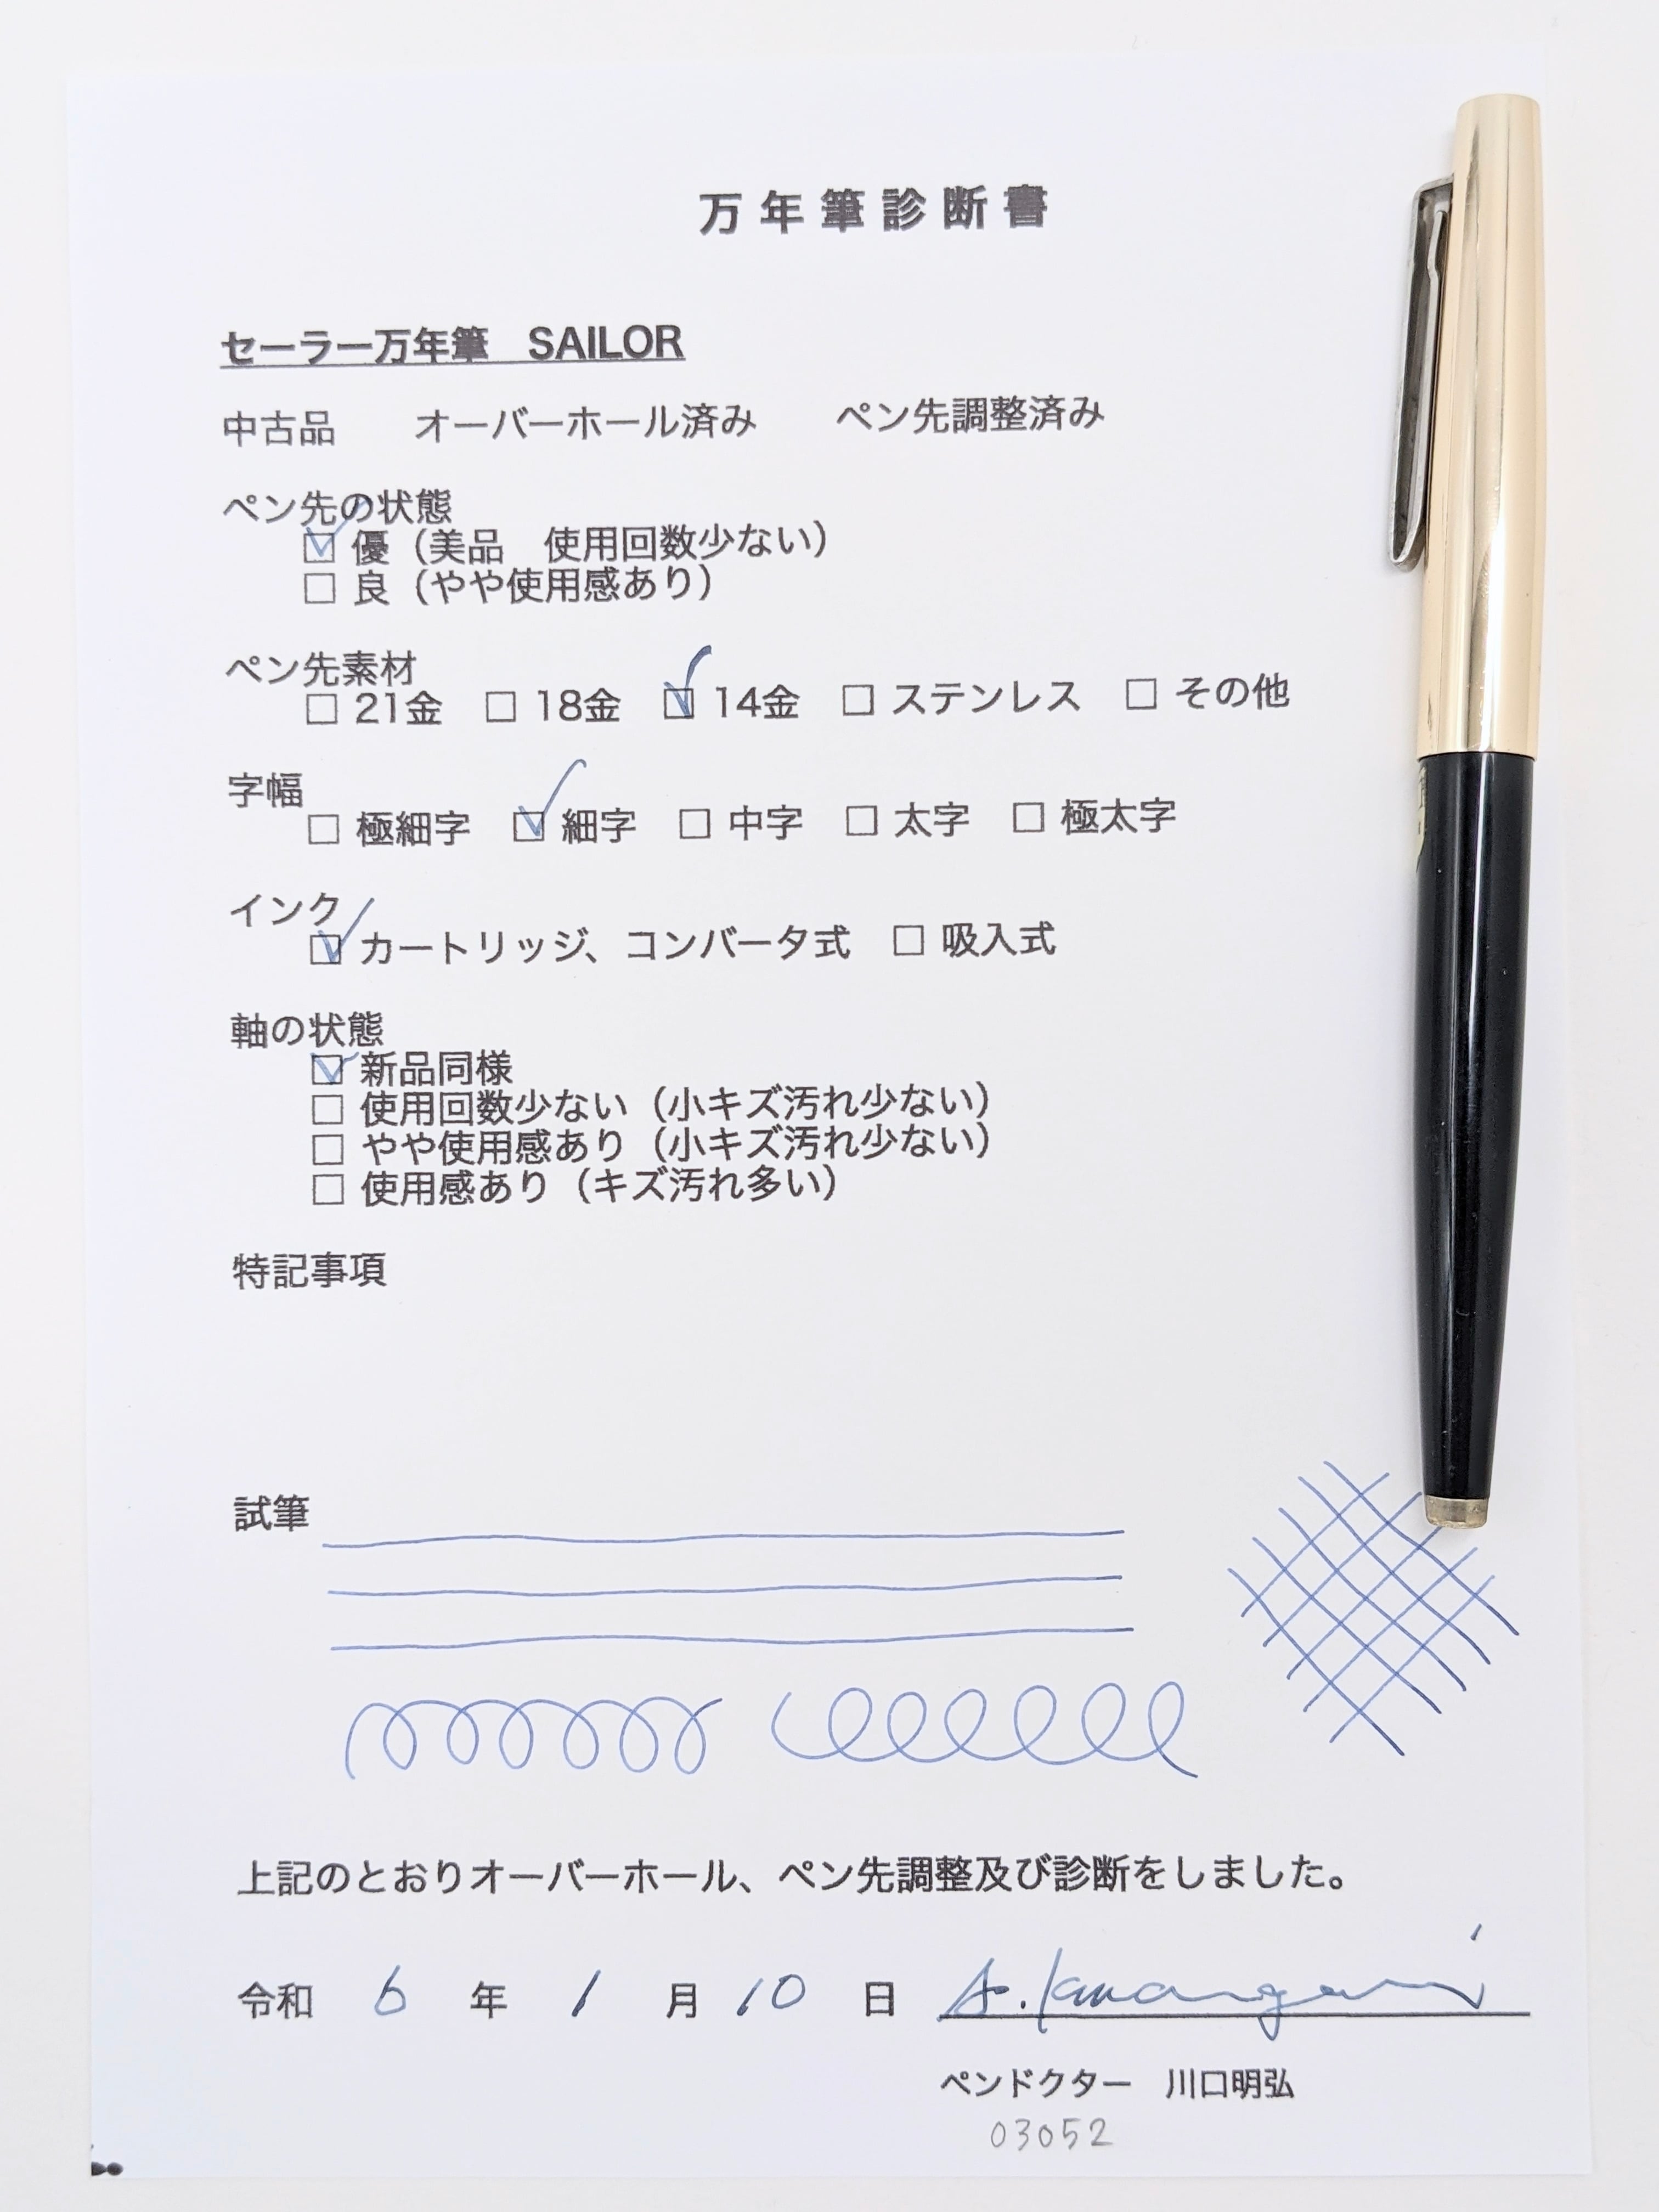 万年筆診断書
セーラー万年筆　SAILOR
中古品　　オーバーホール済み　　ペン先調整済み
ペン先の状態
☑ 優（美品　使用回数少ない）
□ 良（やや使用感あり）
ペン先素材
□ 21金　□ 18金　☑ 14金　□ ステンレス　□ その他
字幅
□ 極細字　☑ 細字　□ 中字　□ 太字　□ 極太字
インク
☑ カートリッジ、コンバータ式　□ 吸入式
軸の状態
☑ 新品同様
□ 使用回数少ない（小キズ汚れ少ない）
□ やや使用感あり（小キズ汚れ少ない）
□ 使用感あり（キズ汚れ多い）
特記事項
試筆
上記のとおりオーバーホール、ペン先調整及び診断をしました。
令和　6　年　1　月　10　日　A. Kawaguchi
ペンドクター　川口明弘
03052